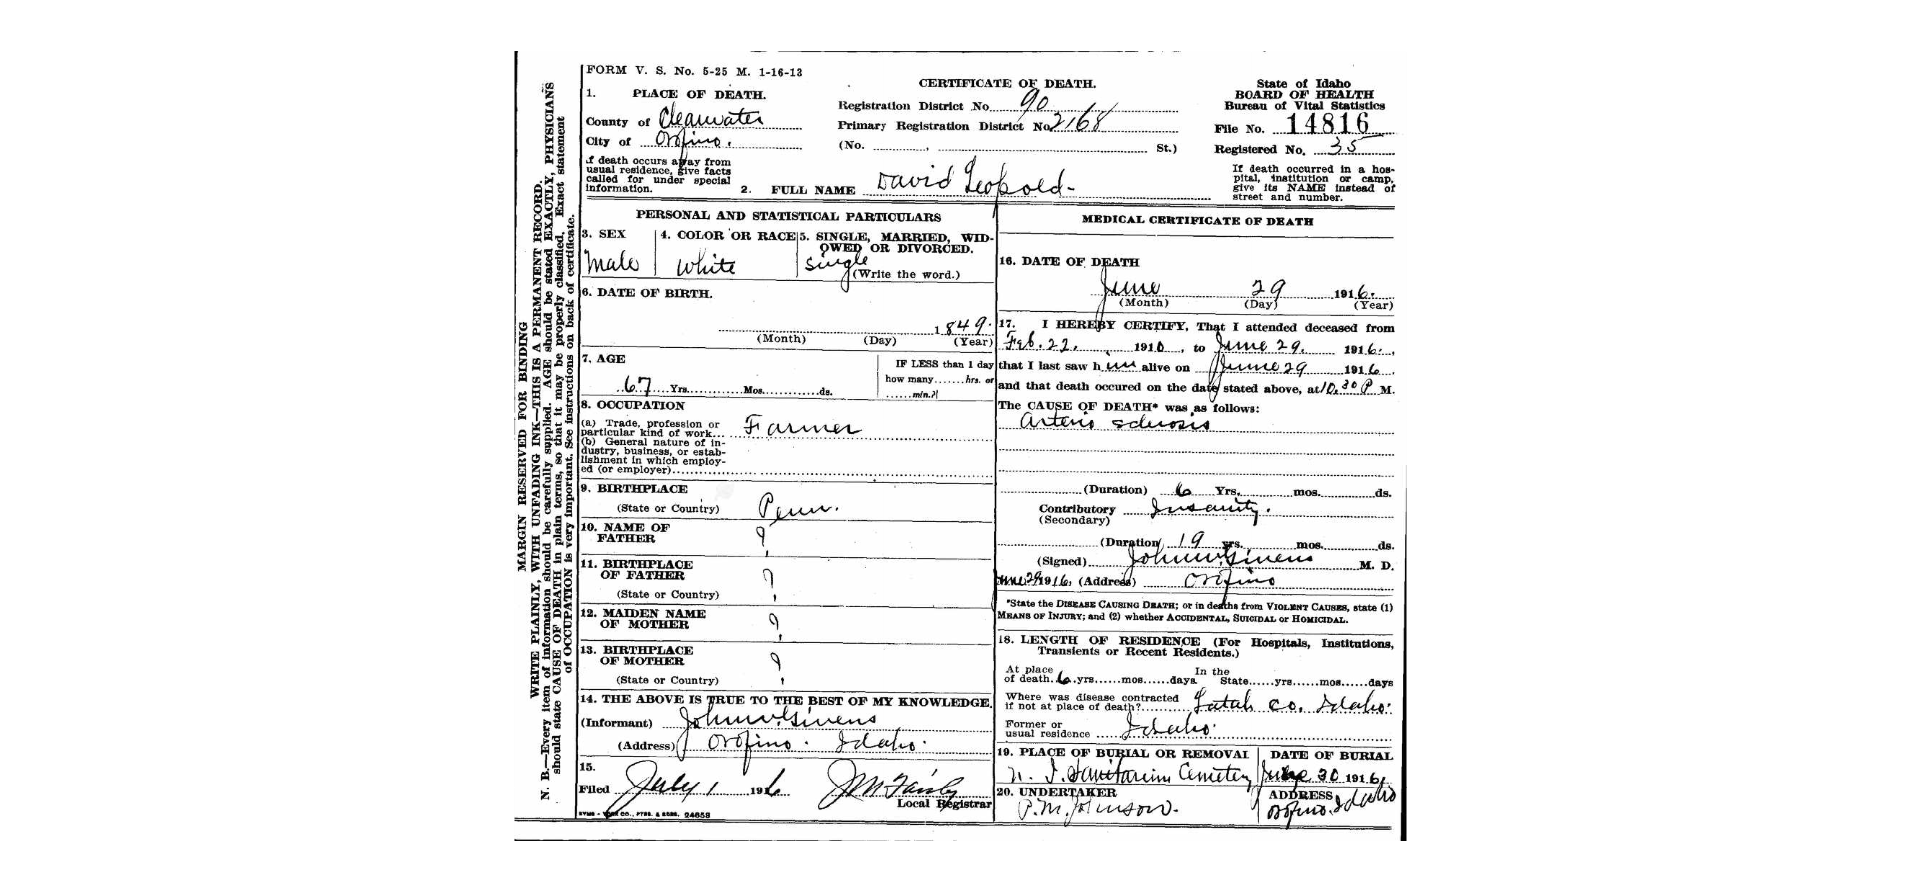 FORM V. S. No. 5-25 M. 1-16-13
CERTIFICATE OF DEATH.
State of Idaho
BOARD OF HEALTH
Bureau of Vital Statistics
File No. 14816
Registered No. 35
If death occurred in a hos-
pital, institution or camp,
give its NAME instead of
street and number.
1. PLACE OF DEATH.
County of Clearwater
City of Orofino.
if death occurs away from
usual residence, give facts
called for under special
information.
Registration District No. 90
Primary Registration District No. 2168
(No. , St.)
2. FULL NAME David Leopold
PERSONAL AND STATISTICAL PARTICULARS
3. SEX
Male
4. COLOR OR RACE
White
5. SINGLE, MARRIED, WID-
OWED OR DIVORCED.
Single
(Write the word.)
6. DATE OF BIRTH.
1849.
(Month) (Day) (Year)
7. AGE
67 Yrs. Mos. ds.
IF LESS than 1 day
how many hrs. or
min.?
8. OCCUPATION
(a) Trade, profession or
particular kind of work... Farmer
(b) General nature of in-
dustry, business, or estab-
lishment in which employ-
ed (or employer)
9. BIRTHPLACE
(State or Country) Penn.
10. NAME OF
FATHER ?
11. BIRTHPLACE
OF FATHER ?
(State or Country)
12. MAIDEN NAME
OF MOTHER ?
13. BIRTHPLACE
OF MOTHER ?
(State or Country)
14. THE ABOVE IS TRUE TO THE BEST OF MY KNOWLEDGE.
(Informant) John W. Givens
(Address) Orofino. Idaho.
15.
Filed July 1 1916
Local Registrar
MEDICAL CERTIFICATE OF DEATH
16. DATE OF DEATH
June 29 1916.
(Month) (Day) (Year)
17. I HEREBY CERTIFY, That I attended deceased from
Feb. 22, 1910, to June 29. 1916.,
that I last saw him alive on June 29 1916
and that death occured on the date stated above, at 10.30 P M.
The CAUSE OF DEATH* was as follows:
Arterio sclerosis
(Duration) 6 Yrs. mos. ds.
Contributory Insanity.
(Secondary)
(Duration) 19 yrs. mos. ds.
(Signed) John W. Givens M. D.
June 29 1916. (Address) Orofino
*State the DISEASE CAUSING DEATH; or in deaths from VIOLENT CAUSES, state (1)
MEANS OF INJURY; and (2) whether ACCIDENTAL, SUICIDAL or HOMICIDAL.
18. LENGTH OF RESIDENCE (For Hospitals, Institutions,
Transients or Recent Residents.)
At place
of death. 6 yrs. mos. days
In the
State yrs. mos. days
Where was disease contracted
if not at place of death? Latah Co. Idaho.
Former or
usual residence Idaho.
19. PLACE OF BURIAL OR REMOVAL
N. I. Sanitarium Cemetery
DATE OF BURIAL
June 30 1916
20. UNDERTAKER
P. M. Johnson.
ADDRESS
Orofino. Idaho
MARGIN RESERVED FOR BINDING
WRITE PLAINLY, WITH UNFADING INK—THIS IS A PERMANENT RECORD.
N. B.—Every item of information should be carefully supplied. AGE should be stated EXACTLY, PHYSICIANS
should state CAUSE OF DEATH in plain terms, so that it may be properly classified. Exact statement
of OCCUPATION is very important. See instructions on back of certificate.